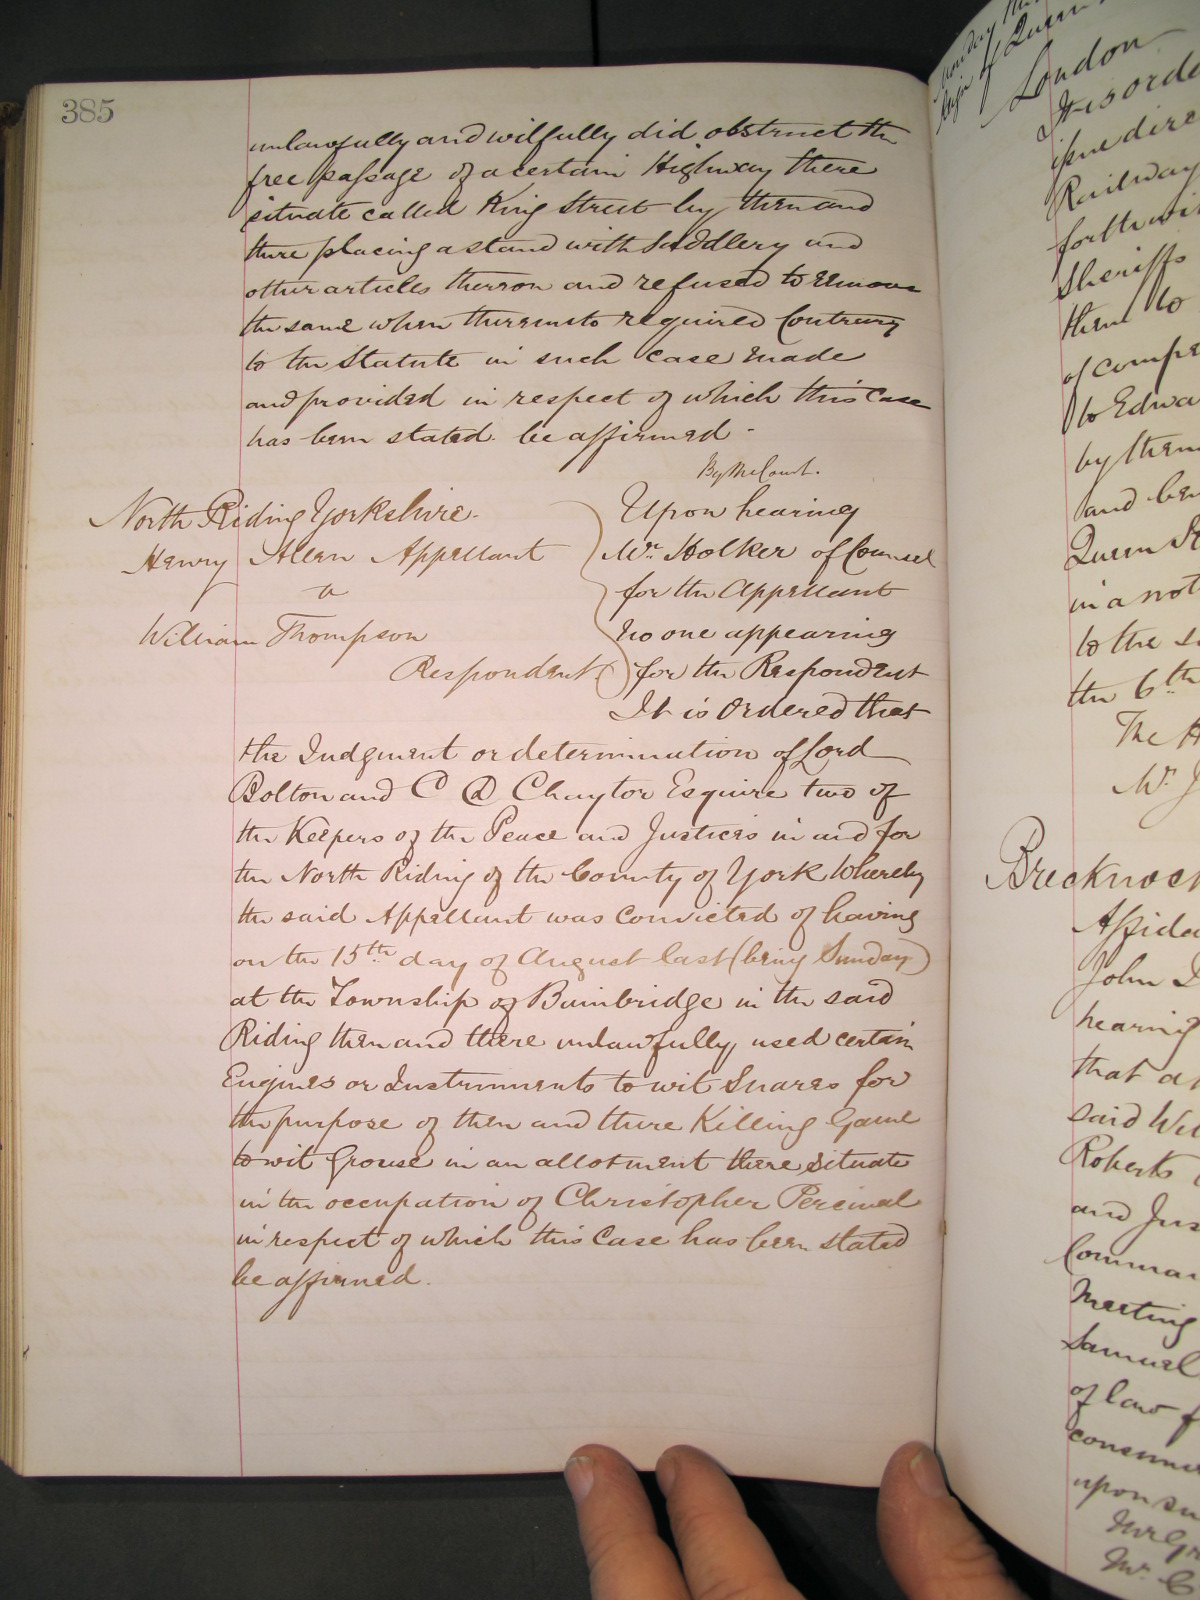 385
unlawfully and wilfully did obstruct the
free passage of a certain Highway there
situate called King Street by then and
there placing a stand with Saddlery and
other articles thereon and refused to remove
the same when thereunto required Contrary
to the Statute in such case made
and provided in respect of which this Case
has been stated be affirmed -
By the Court.
North Riding Yorkshire.
Henry Allen Appellant
v
William Thompson
Respondent
Upon hearing
Mr. Holker of Counsel
for the Appellant
no one appearing
for the Respondent
It is Ordered that
the Judgment or determination of Lord
Bolton and C D Chaytor Esquire two of
the Keepers of the Peace and Justices in and for
the North Riding of the County of York Whereby
the said Appellant was Convicted of having
on the 15th day of August last (being Sunday)
at the Township of Bainbridge in the said
Riding then and there unlawfully used certain
Engines or Instruments to wit Snares for
the purpose of then and there Killing Game
to wit Grouse in an allotment there situate
in the occupation of Christopher Percival
in respect of which this Case has been stated
be affirmed.
of Queen
London
It is orde
issue dire
Railway
forthwi
Sheriffs
them to
of compe
to Edwa
by them
and be
Queen St
in a not
to the
the 6th
The H
Mr. J
Brecknock
Affida
John
hearing
that a
said Wil
Roberts
and Jus
Commo
Meeting
Samuel
of law f
consume
upon su
Mr. C